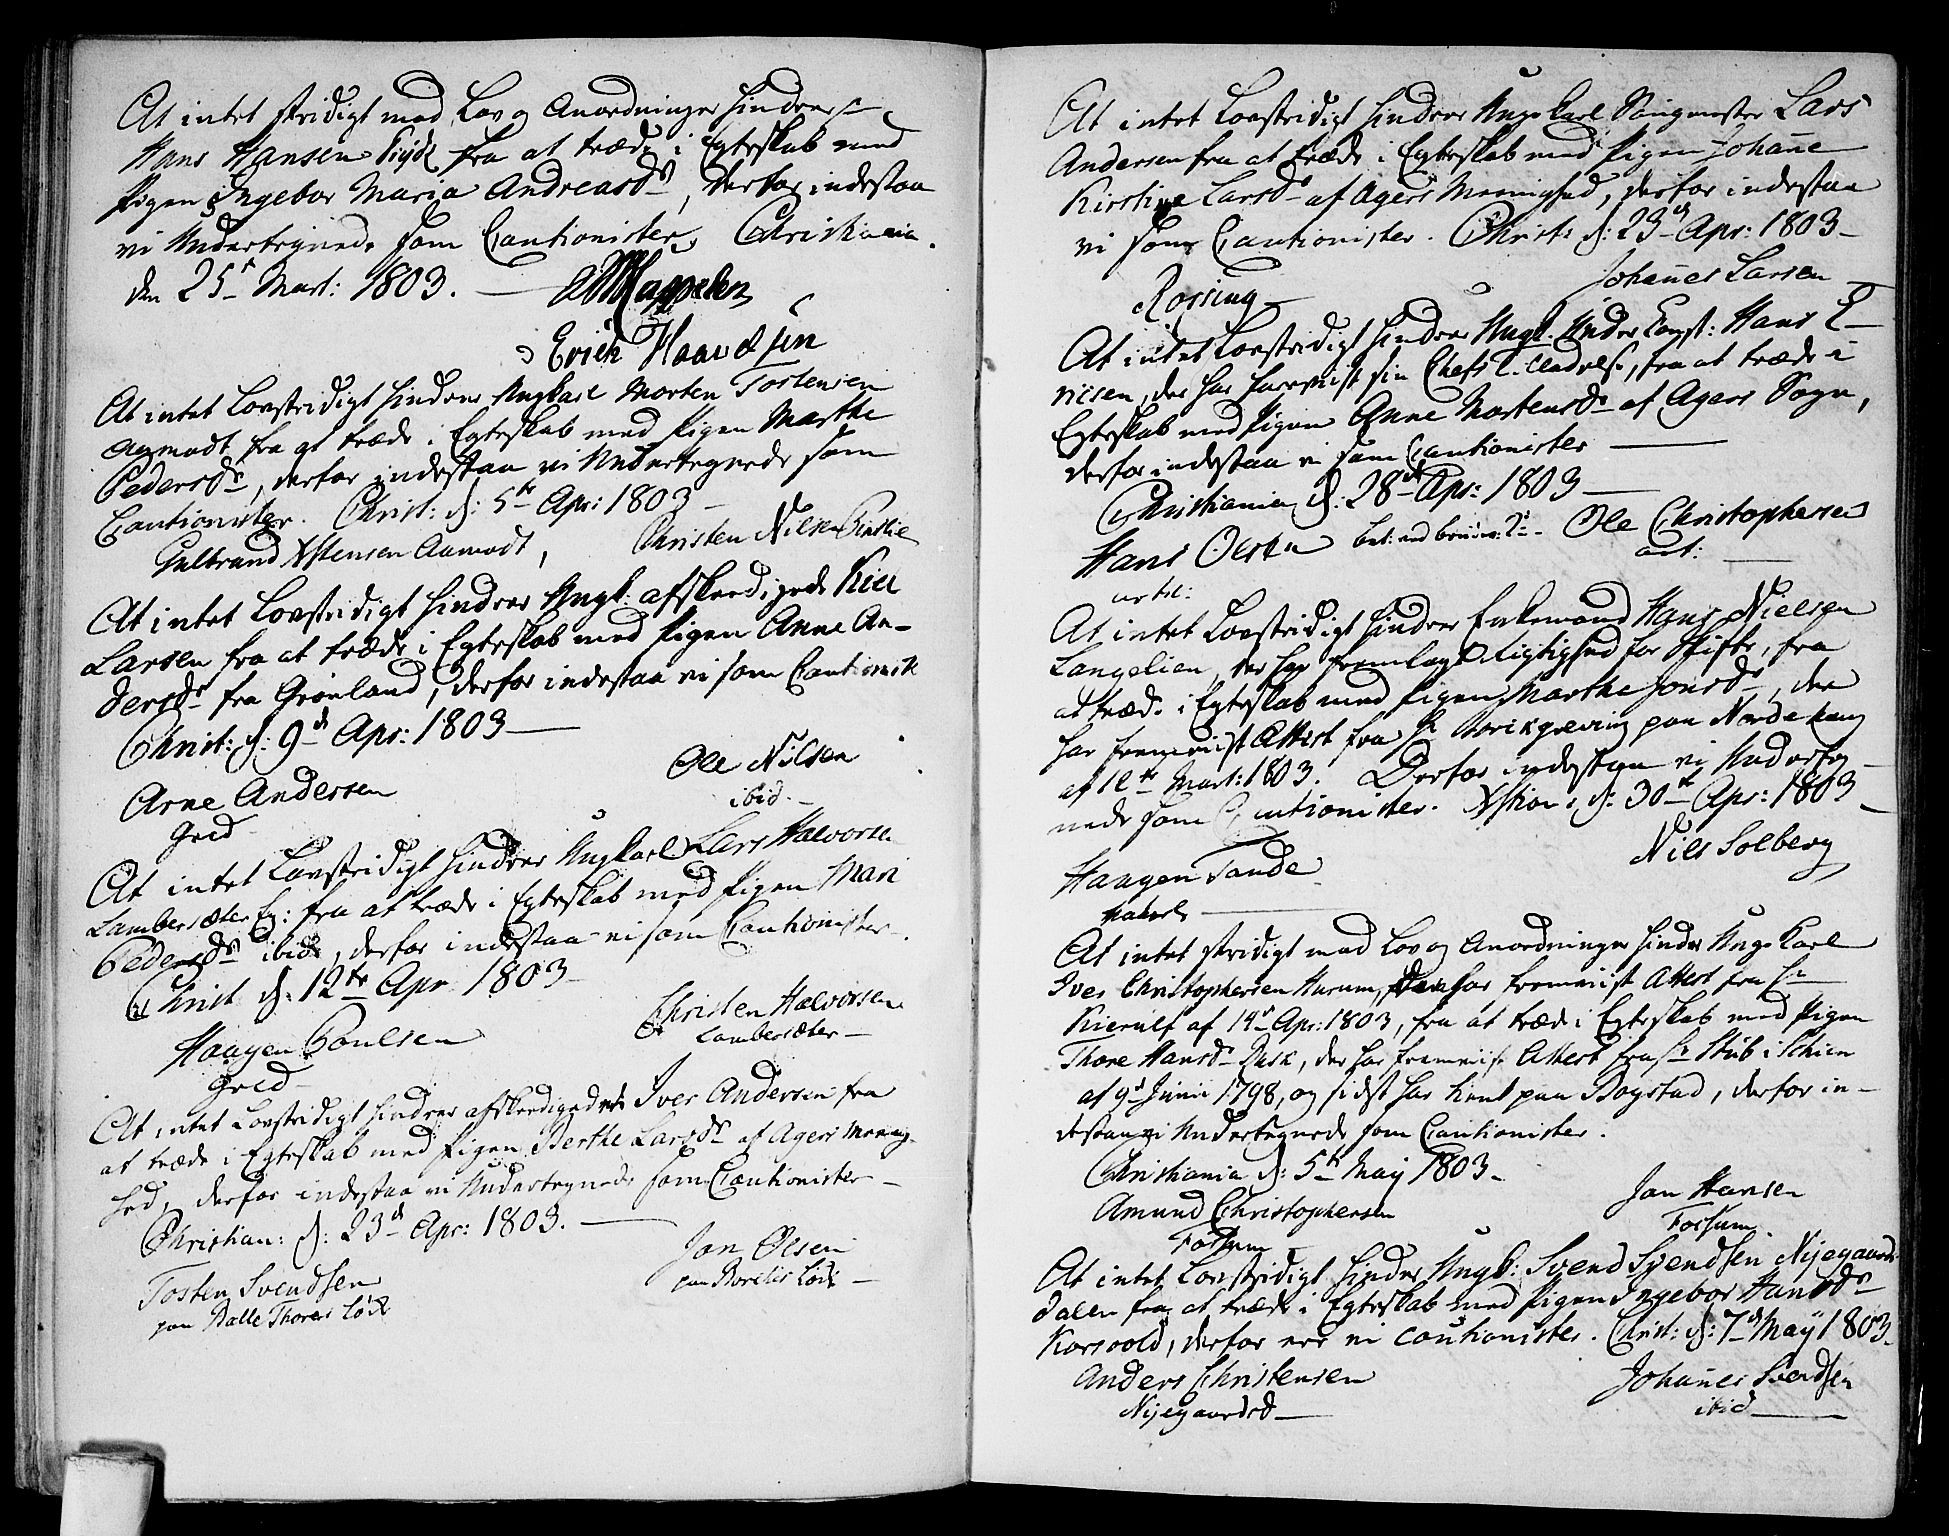 At intet stridigt med Lov og Anordninger hindrer
Hans Hansen fra at træde i Egteskab med
Pigen Ingebor Maria Andreasdr, derfor indestaa
vi Undertegnede som Cautionister, Christiania.
den 25 Mart: 1803.
Erich
At intet Lovstridigt hindrer Ungkarl Morten Tostensen
Aamodt fra at træde i Egteskab med Pigen Marthe
Pedersdr, derfor indestaa vi Undertegnede som
Cautionister. Christ: d: 5te Apr: 1803
Gulbrand Aamodt, Christen Nilsen
At intet Lovstridigt hindrer Ungk: afskeedigede Niel
Larsen fra at træde i Egteskab med Pigen Anne An-
dersdr fra Grønland, derfor indestaa vi som Cautionist
Christ: d: 9d Apr: 1803
Arne Andersen Ole Nilsen
ibid.
At intet Lovstridigt hindrer Ungkarl Lars Halvorsen
Lambersæter Ey: fra at træde i Egteskab med Pigen Mari
Pedersdr ibid, derfor indestaa vi som Cautionister.
Christ d: 12te Apr 1803
Haagen Poulsen Christen Halvorsen
Lambersæter
At intet Lovstridigt hindrer afskeedigede Iver Andersen fra
at træde i Egteskab med Pigen Berthe Larsdr af Agers Meenig-
hed, derfor indestaa vi Undertegnede som Cautionister
Christian: d: 23d Apr: 1803.
Tosten Svendsen Jon Olsen
paa Balle Thores Løch paa Løch
At intet Lovstridigt hindrer Ungekarl Lars
Andersen fra at træde i Egteskab med Pigen Johanne
Kirstine Larsdr af Agers Meenighed, derfor indestaa
vi som Cautionister. Christ: d: 23d Apr: 1803
Rossing Johannes Larsen
At intet Lovstridigt hindrer Ungk. Under Const: Hans E-
riksen, der har forreviist sin Chefs Tilladelse, fra at træde i
Egteskab med Pigen Anne Mortensdr af Agers Sogn,
derfor indestaa vi som Cautionister
Christiania d: 28de Apr: 1803
Hans Olsen Ole Christophersen
At intet Lovstridigt hindrer Enkemand Hans Nielsen
Langelien, der har fremlagt Rigtighed for Skifte, fra
at træde i Egteskab med Pigen Marthe Jonsdr, der
har fremviist Attest fra Hr paa
af 12te Mart: 1803. Derfor indestaa vi Underteg-
nede som Cautionister. Xstian: d: 30te Apr: 1803
Haagen Sande Nils Solberg
At intet stridigt med Lov og Anordninger hindrer Ungekarl
Iver Christophersen Hurum, der har fremviist Attest fra Hr
Kierulf af 14d Apr: 1803, fra at træde i Egteskab med Pigen
Thore Hansdr, der har fremviist Attest fra Hr Stub i Schien
af 9d Junii 1798, og sidst har tient paa Bogstad, derfor in-
destaar vi Undertegnede som Cautionister.
Christiania d: 5te May 1803
Amund Christophersen Jan Hansen
Fossum Fossum
At intet Lovstridigt hindrer Ungk: Svend Svendsen Nyegaards
dalen fra at træde i Egteskab med Pigen Ingebor Hansdr
Korsvold, derfor ere vi Cautionister. Christ: d: 7d May 1803
Anders Christensen Johannes Svendsen
Nyegaardsd ibid